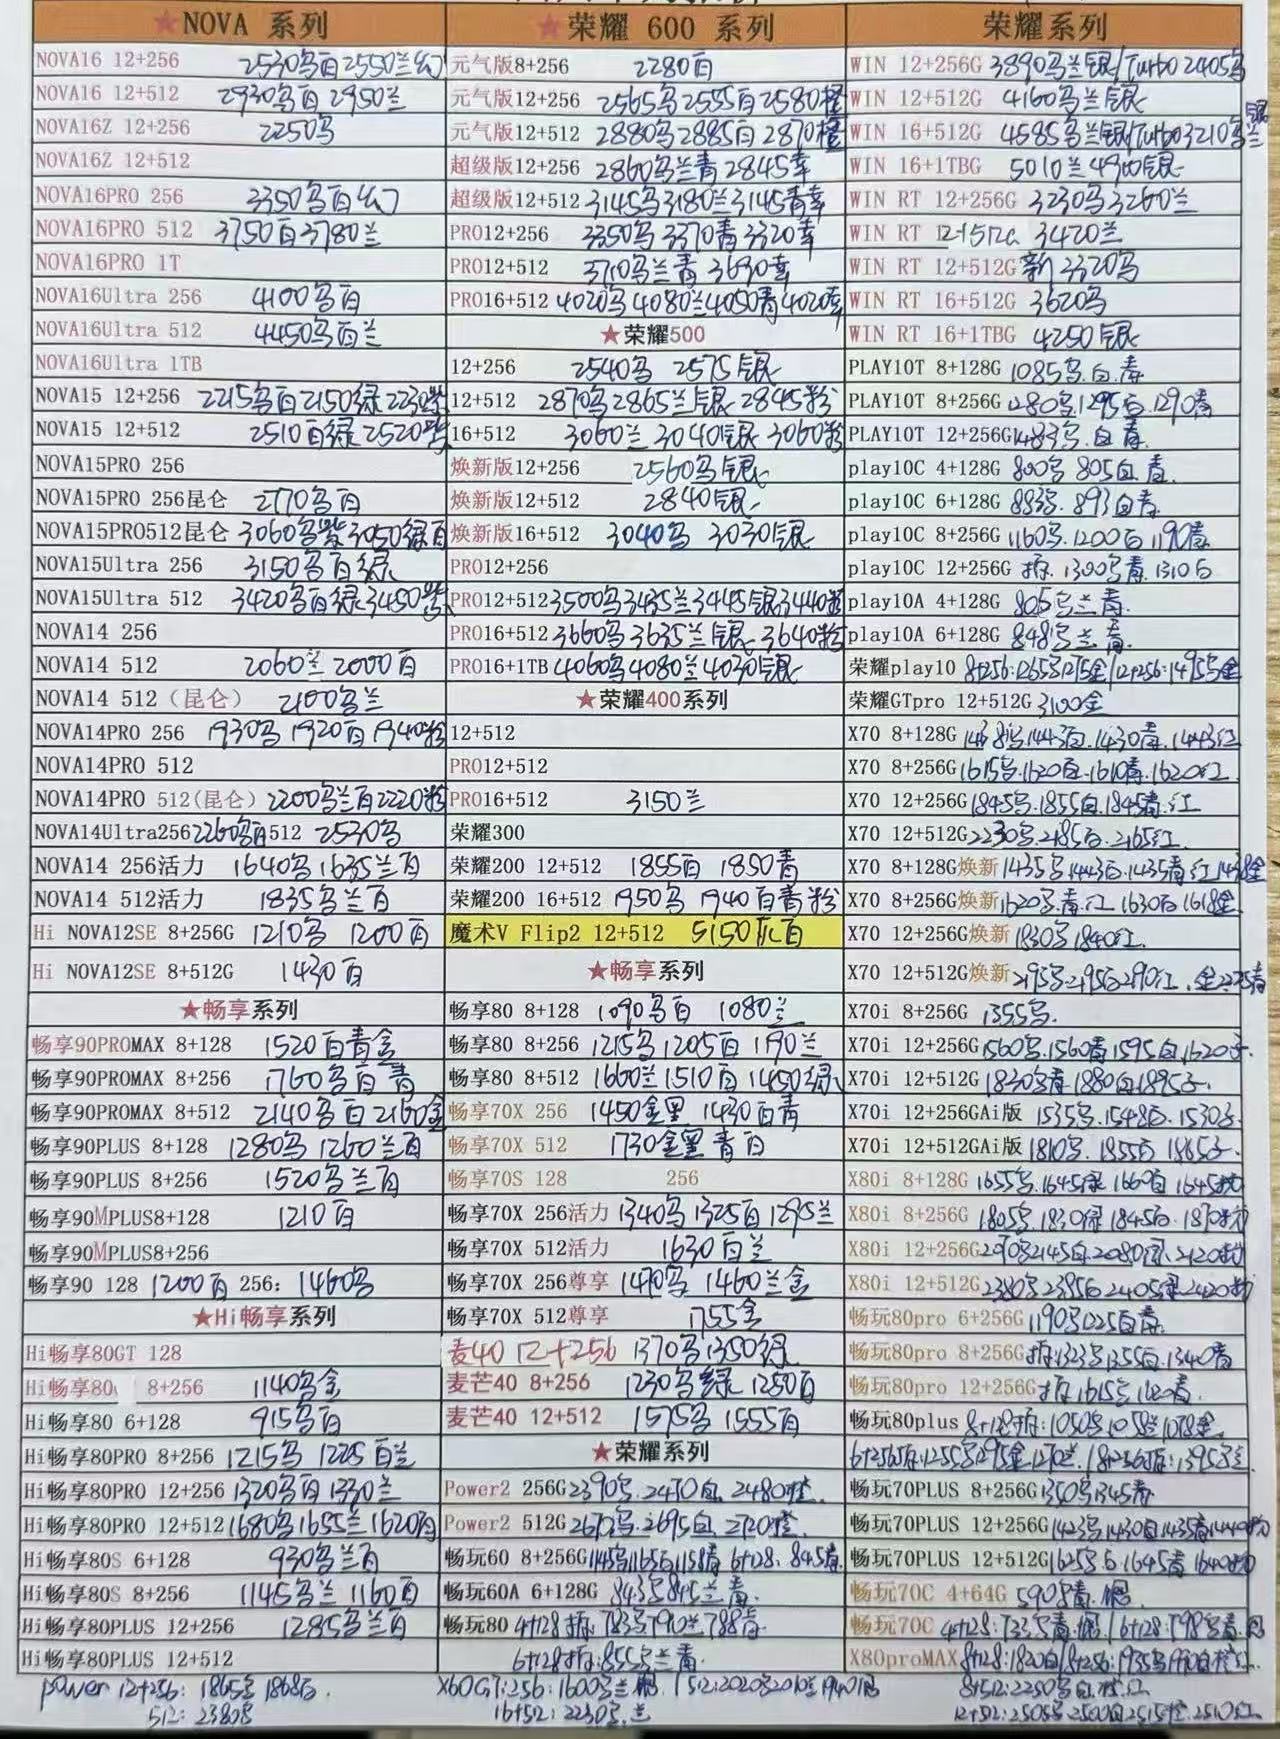 ★NOVA 系列
NOVA16 12+256 2530乌百2550兰幻
NOVA16 12+512 2930乌百 2950兰
NOVA16Z 12+256 2250乌
NOVA16Z 12+512
NOVA16PRO 256 3350乌百幻
NOVA16PRO 512 3750百3780兰
NOVA16PRO 1T
NOVA16Ultra 256 4100乌百
NOVA16Ultra 512 4450乌百兰
NOVA16Ultra 1TB
NOVA15 12+256 2215乌百2150绿2230紫
NOVA15 12+512 2510百绿2520紫
NOVA15PRO 256
NOVA15PRO 256昆仑 2770乌百
NOVA15PRO512昆仑 3060乌紫3050绿百
NOVA15Ultra 256 3150乌百绿
NOVA15Ultra 512 3420乌百绿3450紫
NOVA14 256
NOVA14 512 2060兰 2000百
NOVA14 512（昆仑） 2100乌兰
NOVA14PRO 256 1930乌 1920百 1940粉
NOVA14PRO 512
NOVA14PRO 512(昆仑) 2200乌兰百2220粉
NOVA14Ultra256 2260乌百 512 2530乌
NOVA14 256活力 1640乌 1635兰百
NOVA14 512活力 1835乌兰百
Hi NOVA12SE 8+256G 1210乌 1200百
Hi NOVA12SE 8+512G 1430百
★畅享系列
畅享90PROMAX 8+128 1520百青金
畅享90PROMAX 8+256 1760乌百青
畅享90PROMAX 8+512 2140乌百 2160金
畅享90PLUS 8+128 1280乌 1260兰百
畅享90PLUS 8+256 1520乌兰百
畅享90MPLUS8+128 1210百
畅享90MPLUS8+256
畅享90 128 1200百 256: 1460乌
★Hi畅享系列
Hi畅享80GT 128
Hi畅享80 8+256 1140乌金
Hi畅享80 6+128 915乌百
Hi畅享80PRO 8+256 1215乌 1225百兰
Hi畅享80PRO 12+256 1320乌百 1330兰
Hi畅享80PRO 12+512 1680乌1655兰1620百
Hi畅享80S 6+128 930乌兰百
Hi畅享80S 8+256 1145乌兰 1160百
Hi畅享80PLUS 12+256 1285乌兰百
Hi畅享80PLUS 12+512
power 12+256: 1865乌 1868百.
512: 2380乌
★荣耀 600 系列
元气版8+256 2280百
元气版12+256 2565乌2555百2580橙
元气版12+512 2880乌2885百2870橙
超级版12+256 2860乌兰青2845幸
超级版12+512 3145乌3180兰3145青幸
PRO12+256 3350乌 3370青 3320幸
PRO12+512 3710乌兰青 3690幸
PRO16+512 4020乌4080兰4050青4020幸
★荣耀500
12+256 2540乌 2575银
12+512 2870乌2865兰银 2845粉
16+512 3060兰 3040银 3060粉
焕新版12+256 2560乌银
焕新版12+512 2840银
焕新版16+512 3040乌 3030银
PRO12+256
PRO12+512 3500乌3435兰3445银3440粉
PRO16+512 3660乌3635兰银 3640粉
PRO16+1TB 4060乌4080兰4030银
★荣耀400系列
12+512
PRO12+512
PRO16+512 3150兰
荣耀300
荣耀200 12+512 1855百 1850青
荣耀200 16+512 1950乌 1940百青粉
魔术V Flip2 12+512 5150灰百
★畅享系列
畅享80 8+128 1090乌百 1080兰
畅享80 8+256 1215乌 1205百 1190兰
畅享80 8+512 1660兰1510百1450绿
畅享70X 256 1450金黑 1430百青
畅享70X 512 1730金黑青百
畅享70S 128 256
畅享70X 256活力 1340乌 1325百1295兰
畅享70X 512活力 1630百兰
畅享70X 256尊享 1470乌 1460兰金
畅享70X 512尊享 1755金
麦40 12+256 1370乌1350绿
麦芒40 8+256 1230乌绿 1250百
麦芒40 12+512 1575乌 1555百
★荣耀系列
Power2 256G 2390乌.2470白.2480橙.
Power2 512G 2670乌.2695白.2720橙.
畅玩60 8+256G 1145乌1165白1158青 6+128: 845青.
畅玩60A 6+128G 843乌845兰青.
畅玩80 4+128拆: 783乌790兰788青.
6+128拆:855乌兰青.
X60GT:256:1600乌兰银. 512:2020乌2010兰1940银
16+512: 2230乌.兰
荣耀系列
WIN 12+256G 3890乌兰银/Turbo 2405乌
WIN 12+512G 4160乌兰银
WIN 16+512G 4585乌兰银/Turbo3210乌兰银
WIN 16+1TBG 5010兰4900银
WIN RT 12+256G 3230乌3260兰
WIN RT 12+512G 3420兰
WIN RT 12+512G 新 3320乌
WIN RT 16+512G 3620乌
WIN RT 16+1TBG 4250银
PLAY10T 8+128G 1085乌.白.青
PLAY10T 8+256G 1280乌.1295白.1290青
PLAY10T 12+256G 1483乌.白青.
play10C 4+128G 800乌 805白.青.
play10C 6+128G 883乌.893白青.
play10C 8+256G 1160乌.1200白 1190青.
play10C 12+256G 拆. 1300乌青.1310白
play10A 4+128G 805乌兰青.
play10A 6+128G 848乌兰青.
荣耀play10 8+256:1265乌1275金/12+256:1495乌金
荣耀GTpro 12+512G 3100金
X70 8+128G 1438乌.1443白.1430青.1443红
X70 8+256G 1615乌.1620白.1610青.1620红.
X70 12+256G 1845乌.1855白.1845青.红
X70 12+512G 2230乌.2185白.2165红.
X70 8+128G焕新 1435乌1443白.1435青红1438金
X70 8+256G焕新 1620乌.青.红 1630白 1618金.
X70 12+256G焕新 1830乌1840红.
X70 12+512G焕新 2195乌2195白2190红.金2225青
X70i 8+256G 1355乌.
X70i 12+256G 1560乌.1560青1595白1620子.
X70i 12+512G 1830乌青.1880白1895子.
X70i 12+256GAi版 1535乌.1548白.1530子.
X70i 12+512GAi版 1810乌.1855白 1865子.
X80i 8+128G 1655乌.1645绿1660白1645粉
X80i 8+256G 1805乌.1830绿1845白.1870粉
X80i 12+256G
X80i 12+512G 2380乌2395白2405绿2420粉
畅玩80pro 6+256G 1190乌1225白青.
畅玩80pro 8+256G 拆:1323乌1355白.1340青
畅玩80pro 12+256G 拆1615乌1620青.
畅玩80plus 8+128拆:1050乌1058兰1078金.
6+256拆:1255乌1295金1270兰.18+256拆:1395乌兰
畅玩70PLUS 8+256G 1350乌1345青
畅玩70PLUS 12+256G 1423乌1430白1435青1440粉
畅玩70PLUS 12+512G 1625乌白.1645青1640粉
畅玩70C 4+64G 590乌青.银.
畅玩70C 4+128:733乌青.银/6+128:798乌青.银
X80proMAX 8+128:1820白/8+256:1935乌1990白橙红.
8+512:2250乌白.橙.红
12+512:2505乌.2500白2515橙.2510红.